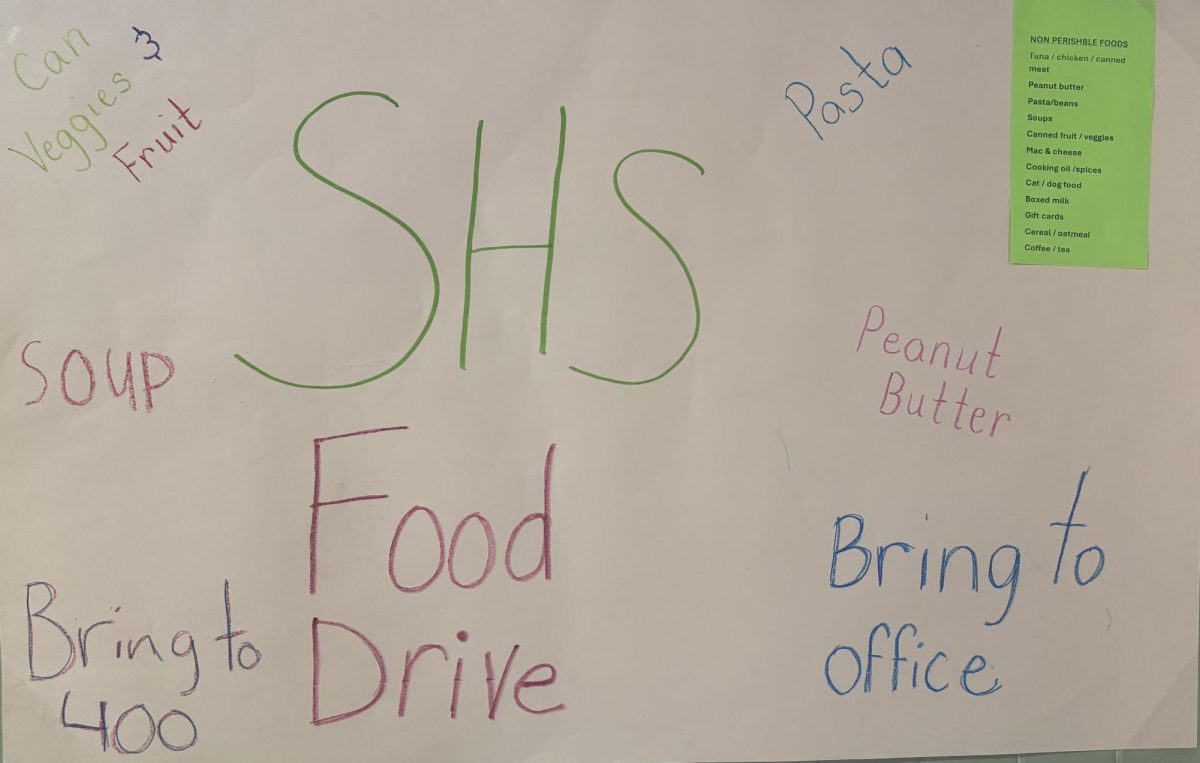 Can
Veggies &
Fruit
SHS
Pasta
NON PERISHBLE FOODS
Tuna / chicken / canned
meat
Peanut butter
Pasta/beans
Soups
Canned fruit / veggies
Mac & cheese
Cooking oil /spices
Cat / dog food
Boxed milk
Gift cards
Cereal / oatmeal
Coffee / tea
Soup
Peanut
Butter
Food
Drive
Bring to
400
Bring to
office